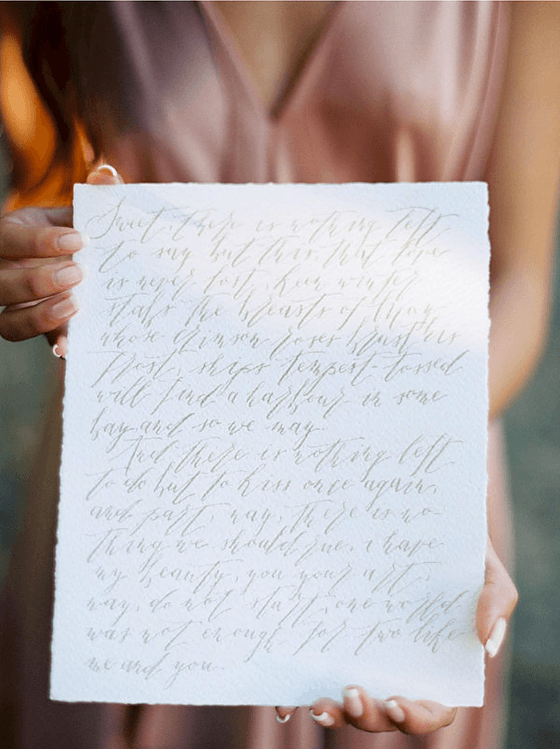 Sweet, there is nothing left
to say but this, that love
is never lost, keen winter
stabs the breasts of May
whose crimson roses burst his
frost, ships tempest-tossed
will find a harbour in some
bay, and so we may.
And there is nothing left
to do but to kiss once again,
and part, nay, there is no
thing we should rue, i have
my beauty, you your art,
nay, do not start, one world
was not enough for two like
me and you.